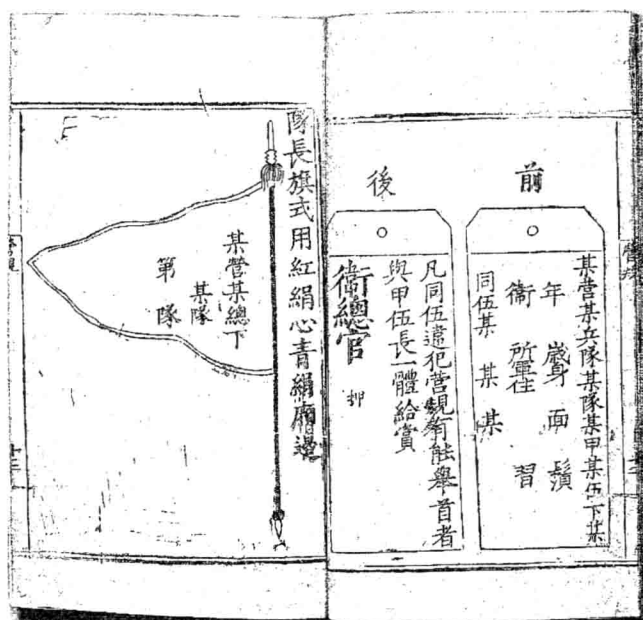 前
某營某兵隊某隊某甲某伍下某
年 歲身 面 鬚
衞 所軍住 習
同伍某 某 某
後
凡同伍違犯營規有能舉首者
與甲伍長一體給賞
衞總官 押
隊長旗式用紅絹心青絹廂邊
某營某總下
某隊
第 隊